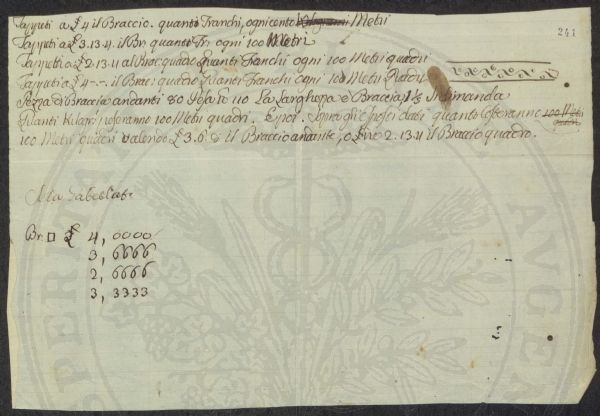 241
Tappeti a £ 4 il Braccio. quanto Franchi, ogni cento Metri
Tappeti a £ 3.13.4. il Br. quanti Fr. ogni 100 Metri
Tappeti a £ 2.13.4 al Brac. quadro quanti Franchi ogni 100 Metri quadri
Tappeti a £ 4-.-. il Brac: quadro Quanti Franchi ogni 100 Metri Quadri
Pezza di Braccia andanti 80 Pesa 110 La Larghezza è Braccia 1 Si dimanda
Quanti peseranno 100 Metri quadri. E poi. Sopra gli espressi dati quanto costeranno 100 Metri quadri
100 Metri quadri valendo £ 3.6.8 il Braccio andante, o Lire 2.13.4 il Braccio quadro.
Br. □ £ 4, 0000
3, 6666
2, 6666
3, 3333
PERITAT
AVGE